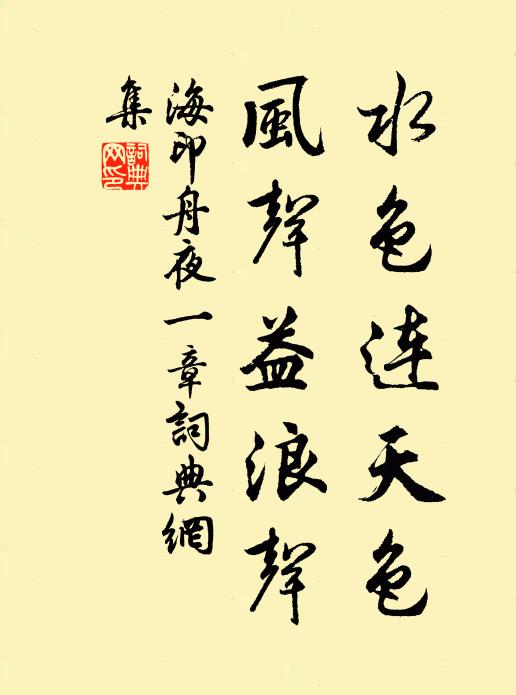 水色連天色
風聲益浪聲
海印舟夜一章詞典網
集
詞典網印